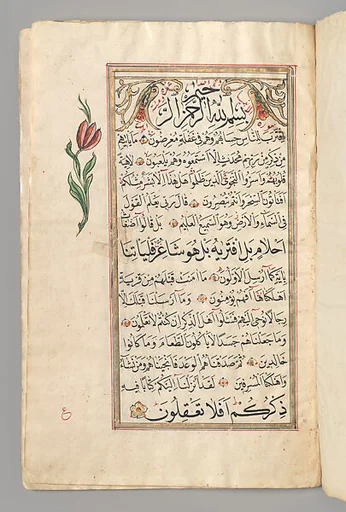 بسم الله الرحمن الرحيم
اقترب للناس حسابهم وهم في غفلة معرضون ما يأتيهم
من ذكر من ربهم محدث إلا استمعوه وهم يلعبون لاهية
قلوبهم وأسروا النجوى الذين ظلموا هل هذا إلا بشر مثلكم
أفتأتون السحر وأنتم تبصرون قال ربي يعلم القول
في السماء والأرض وهو السميع العليم بل قالوا أضغاث
أحلام بل افتريه بل هو شاعر فليأتنا
بآية كما أرسل الأولون ما آمنت قبلهم من قرية
أهلكناها أفهم يؤمنون وما أرسلنا قبلك إلا
رجالا نوحي إليهم فسئلوا أهل الذكر إن كنتم لا تعلمون
وما جعلناهم جسدا لا يأكلون الطعام وما كانوا
خالدين ثم صدقناهم الوعد فأنجيناهم ومن نشاء
وأهلكنا المسرفين لقد أنزلنا إليكم كتابا فيه
ذكركم أفلا تعقلون
ع